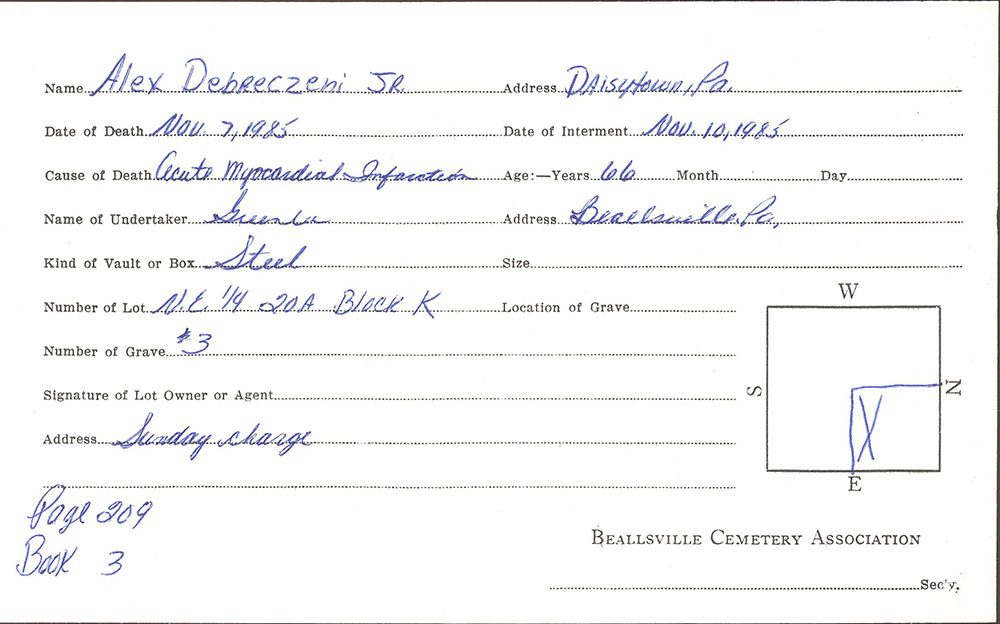 Name Alex Debreczeni JR. Address Daisytown, Pa.
Date of Death Nov. 7, 1985 Date of Interment Nov. 10, 1985
Cause of Death Acute Myocardial Infarction Age:—Years 66 Month Day
Name of Undertaker Greenlee Address Beallsville, Pa,
Kind of Vault or Box Steel Size
Number of Lot N.E. 1/4 20A Block K Location of Grave
W
Number of Grave #3
S
N
Signature of Lot Owner or Agent
Address Sunday charge
E
Page 209
Book 3
BEALLSVILLE CEMETERY ASSOCIATION
Sec'y.